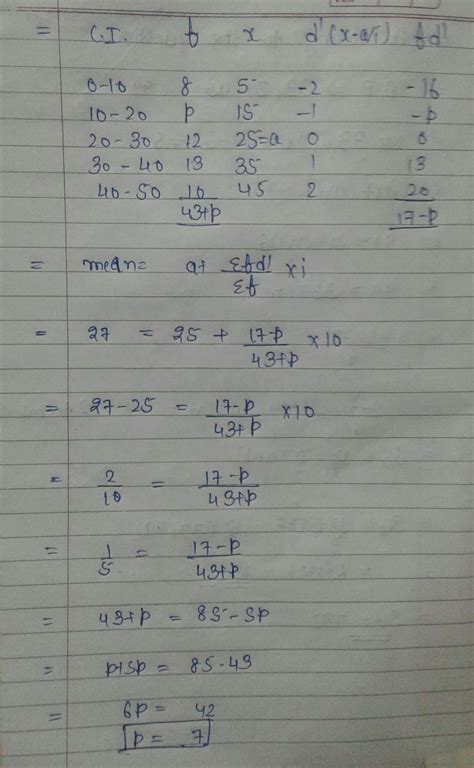 = C.I. f x d'(x-a/i) fd'
0-10 8 5 -2 -16
10-20 p 15 -1 -p
20-30 12 25=a 0 0
30-40 13 35 1 13
40-50 10 45 2 20
43+p 17-p
= mean = a+ Σfd'/Σf × i
= 27 = 25 + 17-p/43+p ×10
= 27-25 = 17-p/43+p ×10
= 2/10 = 17-p/43+p
= 1/5 = 17-p/43+p
= 43+p = 85-5p
= p+5p = 85-43
= 6p = 42
p = 7